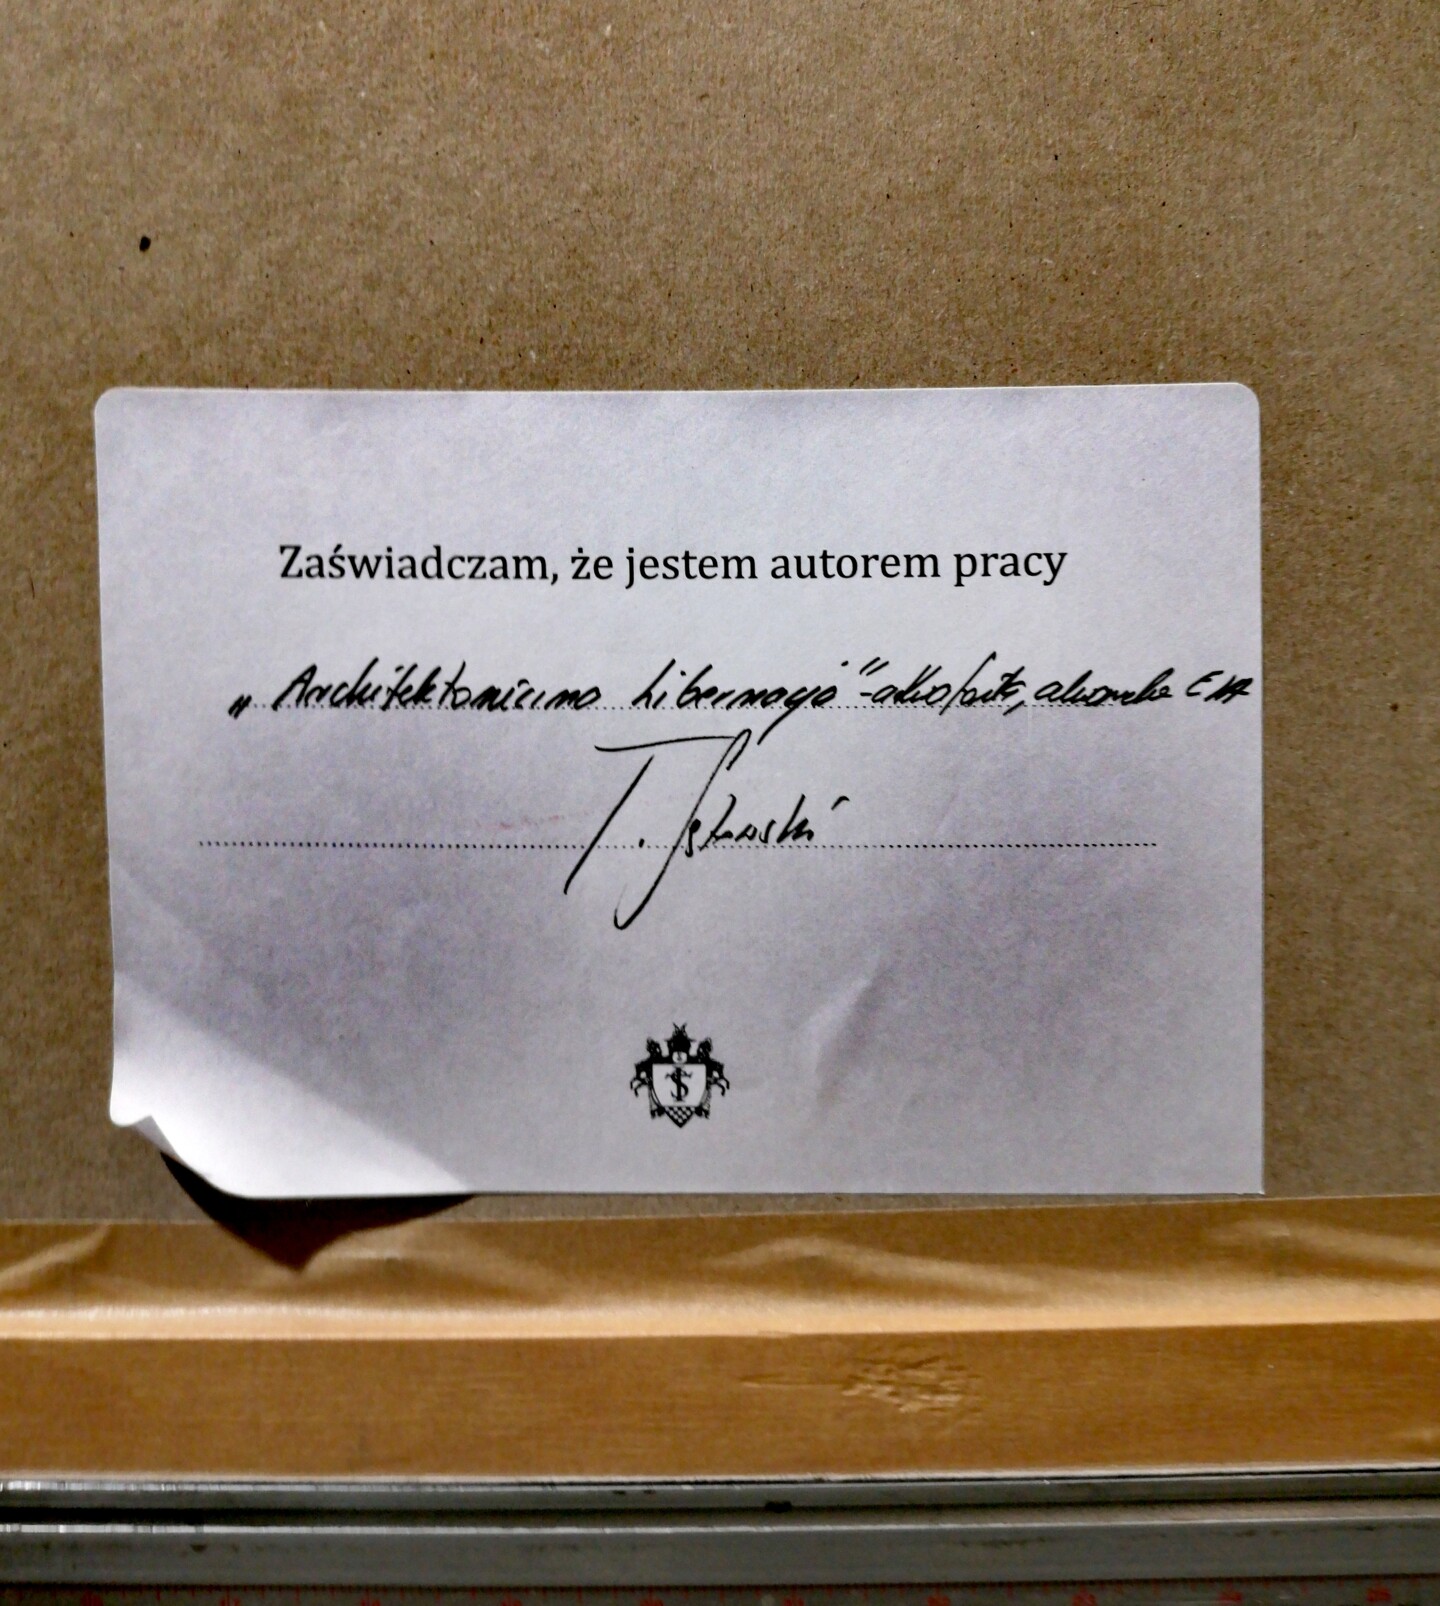 Zaświadczam, że jestem autorem pracy
„Architektoniczna hibernacja" - akwaforta, akwarela E/A
T. Sętowski
TS